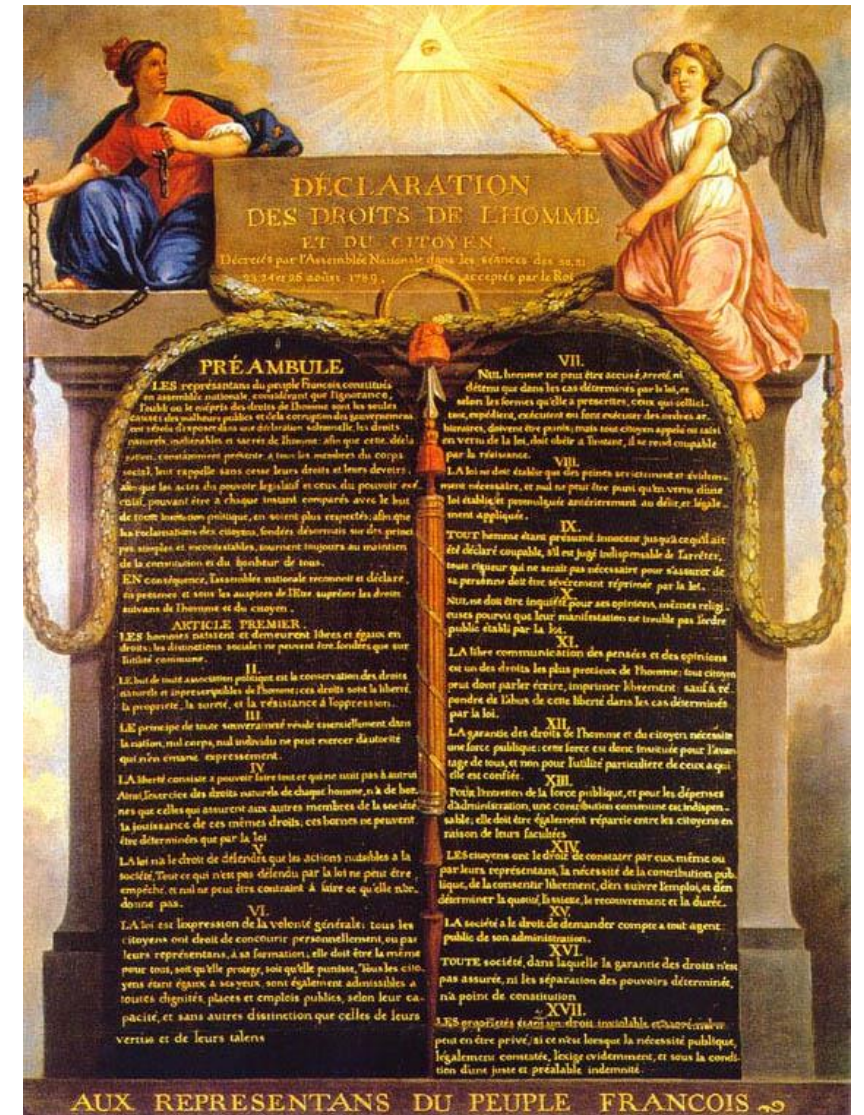 DÉCLARATION
DES DROITS DE L'HOMME
ET DU CITOYEN,
Décretés par l'Assemblée Nationale dans les séances des 20, 21
23, 24 et 26 aoûst 1789, acceptés par le Roi
PRÉAMBULE
LES représentans du peuple François constitués
en assemblée nationale, considérant que l'ignorance,
l'oubli ou le mépris des droits de l'homme sont les seules
causes des malheurs publics et de la corruption des gouvernemens
ont résolu d'exposer dans une déclaration solemnelle, les droits
naturels, inaliénables et sacrés de l'homme; afin que cette décla
ration, constamment présente a tous les membres du corps
social, leur rappelle sans cesse leurs droits et leurs devoirs,
afin que les actes du pouvoir legislatif et ceux du pouvoir exé
cutif, pouvant être à chaque instant comparés avec le but
de toute institution politique, en soient plus respectés; afin que
les reclamations des citoyens, fondées désormais sur des princi
pes simples et incontestables, tournent toujours au maintien
de la constitution et du bonheur de tous.
EN conséquence, l'assemblée nationale reconnoit et déclare,
en presence et sous les auspices de l'Etre suprême les droits
suivans de l'homme et du citoyen.
ARTICLE PREMIER.
LES hommes naissent et demeurent libres et égaux en
droits; les distinctions sociales ne peuvent être fondées que sur
l'utilité commune.
II.
LE but de toute association politique est la conservation des droits
naturels et inprescriptibles de l'homme; ces droits sont la liberté,
la propriété, la sureté, et la résistance à l'oppression.
III.
LE principe de toute souveraineté réside essentiellement dans
la nation, nul corps, nul individu ne peut exercer d'autorité
qui n'en émane expressement.
IV
LA liberté consiste a pouvoir faire tout ce qui ne nuit pas à autrui
Ainsi, l'exercice des droits naturels de chaque homme, n'a de bor_
nes que celles qui assurent aux autres membres de la société
la jouissance de ces mêmes droits; ces bornes ne peuvent
être déterminées que par la loi
V
LA loi n'a le droit de défendre que les actions nuisibles a la
société. Tout ce qui n'est pas défendu par la loi ne peut être
empêché, et nul ne peut être contraint à faire ce qu'elle n'or_
donne pas.
VI.
LA loi est l'expression de la volonté générale; tous les
citoyens ont droit de concourir personnellement, ou par
leurs représentans, à sa formation; elle doit être la même
pour tous, soit qu'elle protege, soit qu'elle punisse, Tous les cito_
yens étant égaux à ses yeux, sont également admissibles a
toutes dignités, places et emplois publics, selon leur ca_
pacité, et sans autres distinction que celles de leurs
vertus et de leurs talens
VII.
NUL homme ne peut être accusé, arreté, ni
détenu que dans les cas déterminés par la loi, et
selon les formes qu'elle a prescrites, ceux qui sollici
tent, expédient, exécutent ou font exécuter des ordres ar_
bitraires, doivent être punis; mais tout citoyen appelé ou saisi
en vertu de la loi, doit obéir a l'instant, il se rend coupable
par la résistance.
VIII.
LA loi ne doit établir que des peines strictement et évidem_
ment nécessaire, et nul ne peut être puni qu'en vertu d'une
loi établie et promulguée antérierement au délit, et légale_
ment appliquée.
IX.
TOUT homme étant présumé innocent jusqu'a ce qu'il ait
été déclaré coupable, s'il est jugé indispensable de l'arrêter,
toute rigueur qui ne serait pas nécessaire pour s'assurer de
sa personne doit être sévèrement réprimée par la loi.
X.
NUL ne doit être inquiété pour ses opinions, mêmes religi_
euses pourvu que leur manifestation ne trouble pas l'ordre
public établi par la loi.
XI.
LA libre communication des pensées et des opinions
est un des droits les plus precieux de l'homme; tout citoyen
peut dont parler écrire, imprimer librement sauf à ré_
pondre de l'abus de cette liberté dans les cas déterminés
par la loi.
XII.
LA garantie des droits de l'homme et du citoyen nécessite
une force publique; cette force est donc instituée pour l'avan_
tage de tous, et non pour l'utilité particuliere de ceux a qui
elle est confiée.
XIII.
Pour l'entretien de la force publique, et pour les dépenses
d'administration, une contribution commune est indispen_
sable; elle doit être également répartie entre les citoyens en
raison de leurs facultées
XIV.
LES citoyens ont le droit de constater par eux même ou
par leurs représentans, la nécessité de la contribution pub_
lique, de la consentir librement, d'en suivre l'emploi, et d'en
déterminer la quotité, l'assiete, le recouvrement et la durée.
XV.
LA société a le droit de demander compte a tout agent
public de son administration.
XVI.
TOUTE société, dans laquelle la garantie des droits n'est
pas assurée, ni les séparation des pouvoirs déterminée,
n'a point de constitution
XVII.
LES propriétés étant un droit inviolable et sacré, nul ne
peut en être privé, si ce n'est lorsque la nécessité publique,
légalement constatée, l'exige evidemment, et sous la condi_
tion d'une juste et préalable indemnité.
AUX REPRESENTANS DU PEUPLE FRANCOIS